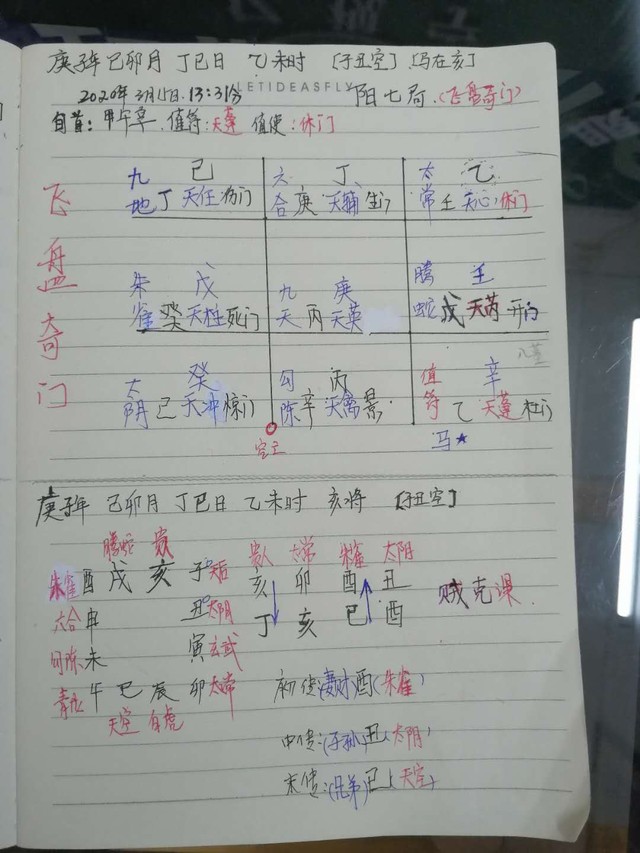 庚子年 己卯月 丁巳日 乙未时 [子丑空] [马在亥]
LETIDEASFLY
2020年3月15日.13:31分 阳七局.(飞盘奇门)
旬首:甲午辛.值符:天蓬 值使:休门
飞盘奇门
九 己 六 丁 太 乙
地丁 天任伤门 合庚 天辅生门 常壬 天心休门
朱 戊 九 庚 腾 壬
雀癸 天柱死门 天丙 天英 蛇戊 天芮 开门
太 癸 勾 丙 值 辛
阴己 天冲惊门 陈辛 天禽景 符乙 天蓬杜门
空亡 马★
庚子年 己卯月 丁巳日 乙未时 亥将 [子丑空]
腾蛇 贵 贵人 太常 朱雀 太阴
朱雀 酉 戌 亥 子 亥 卯 酉 丑 贼克课.
六合 申 丑太阴 丁 亥 巳 酉
勾陈 未 寅玄武
青龙 午 巳 辰 卯太常 初传:(妻财)酉(朱雀)
天空 白虎
中传:(子孙)丑(太阴)
末传:(兄弟)巳(天空)